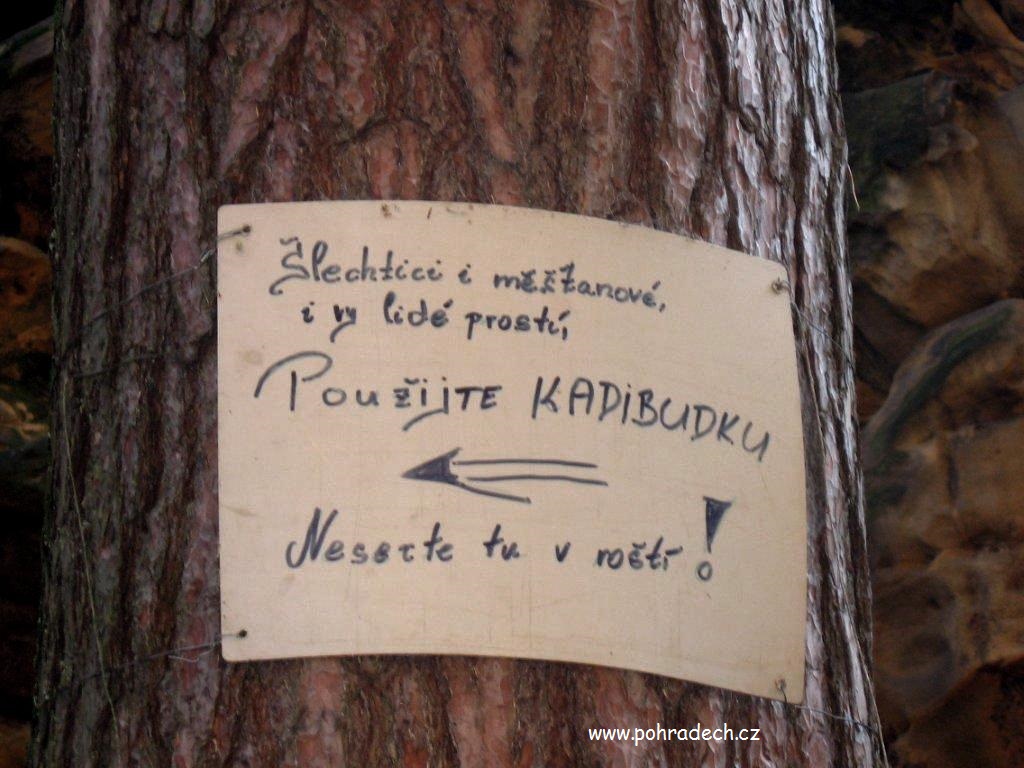 Šlechtici i měšťanové,
i vy lidé prostí,
Použijte KADiBUDKU
Neserte tu v roští!
www.pohradech.cz